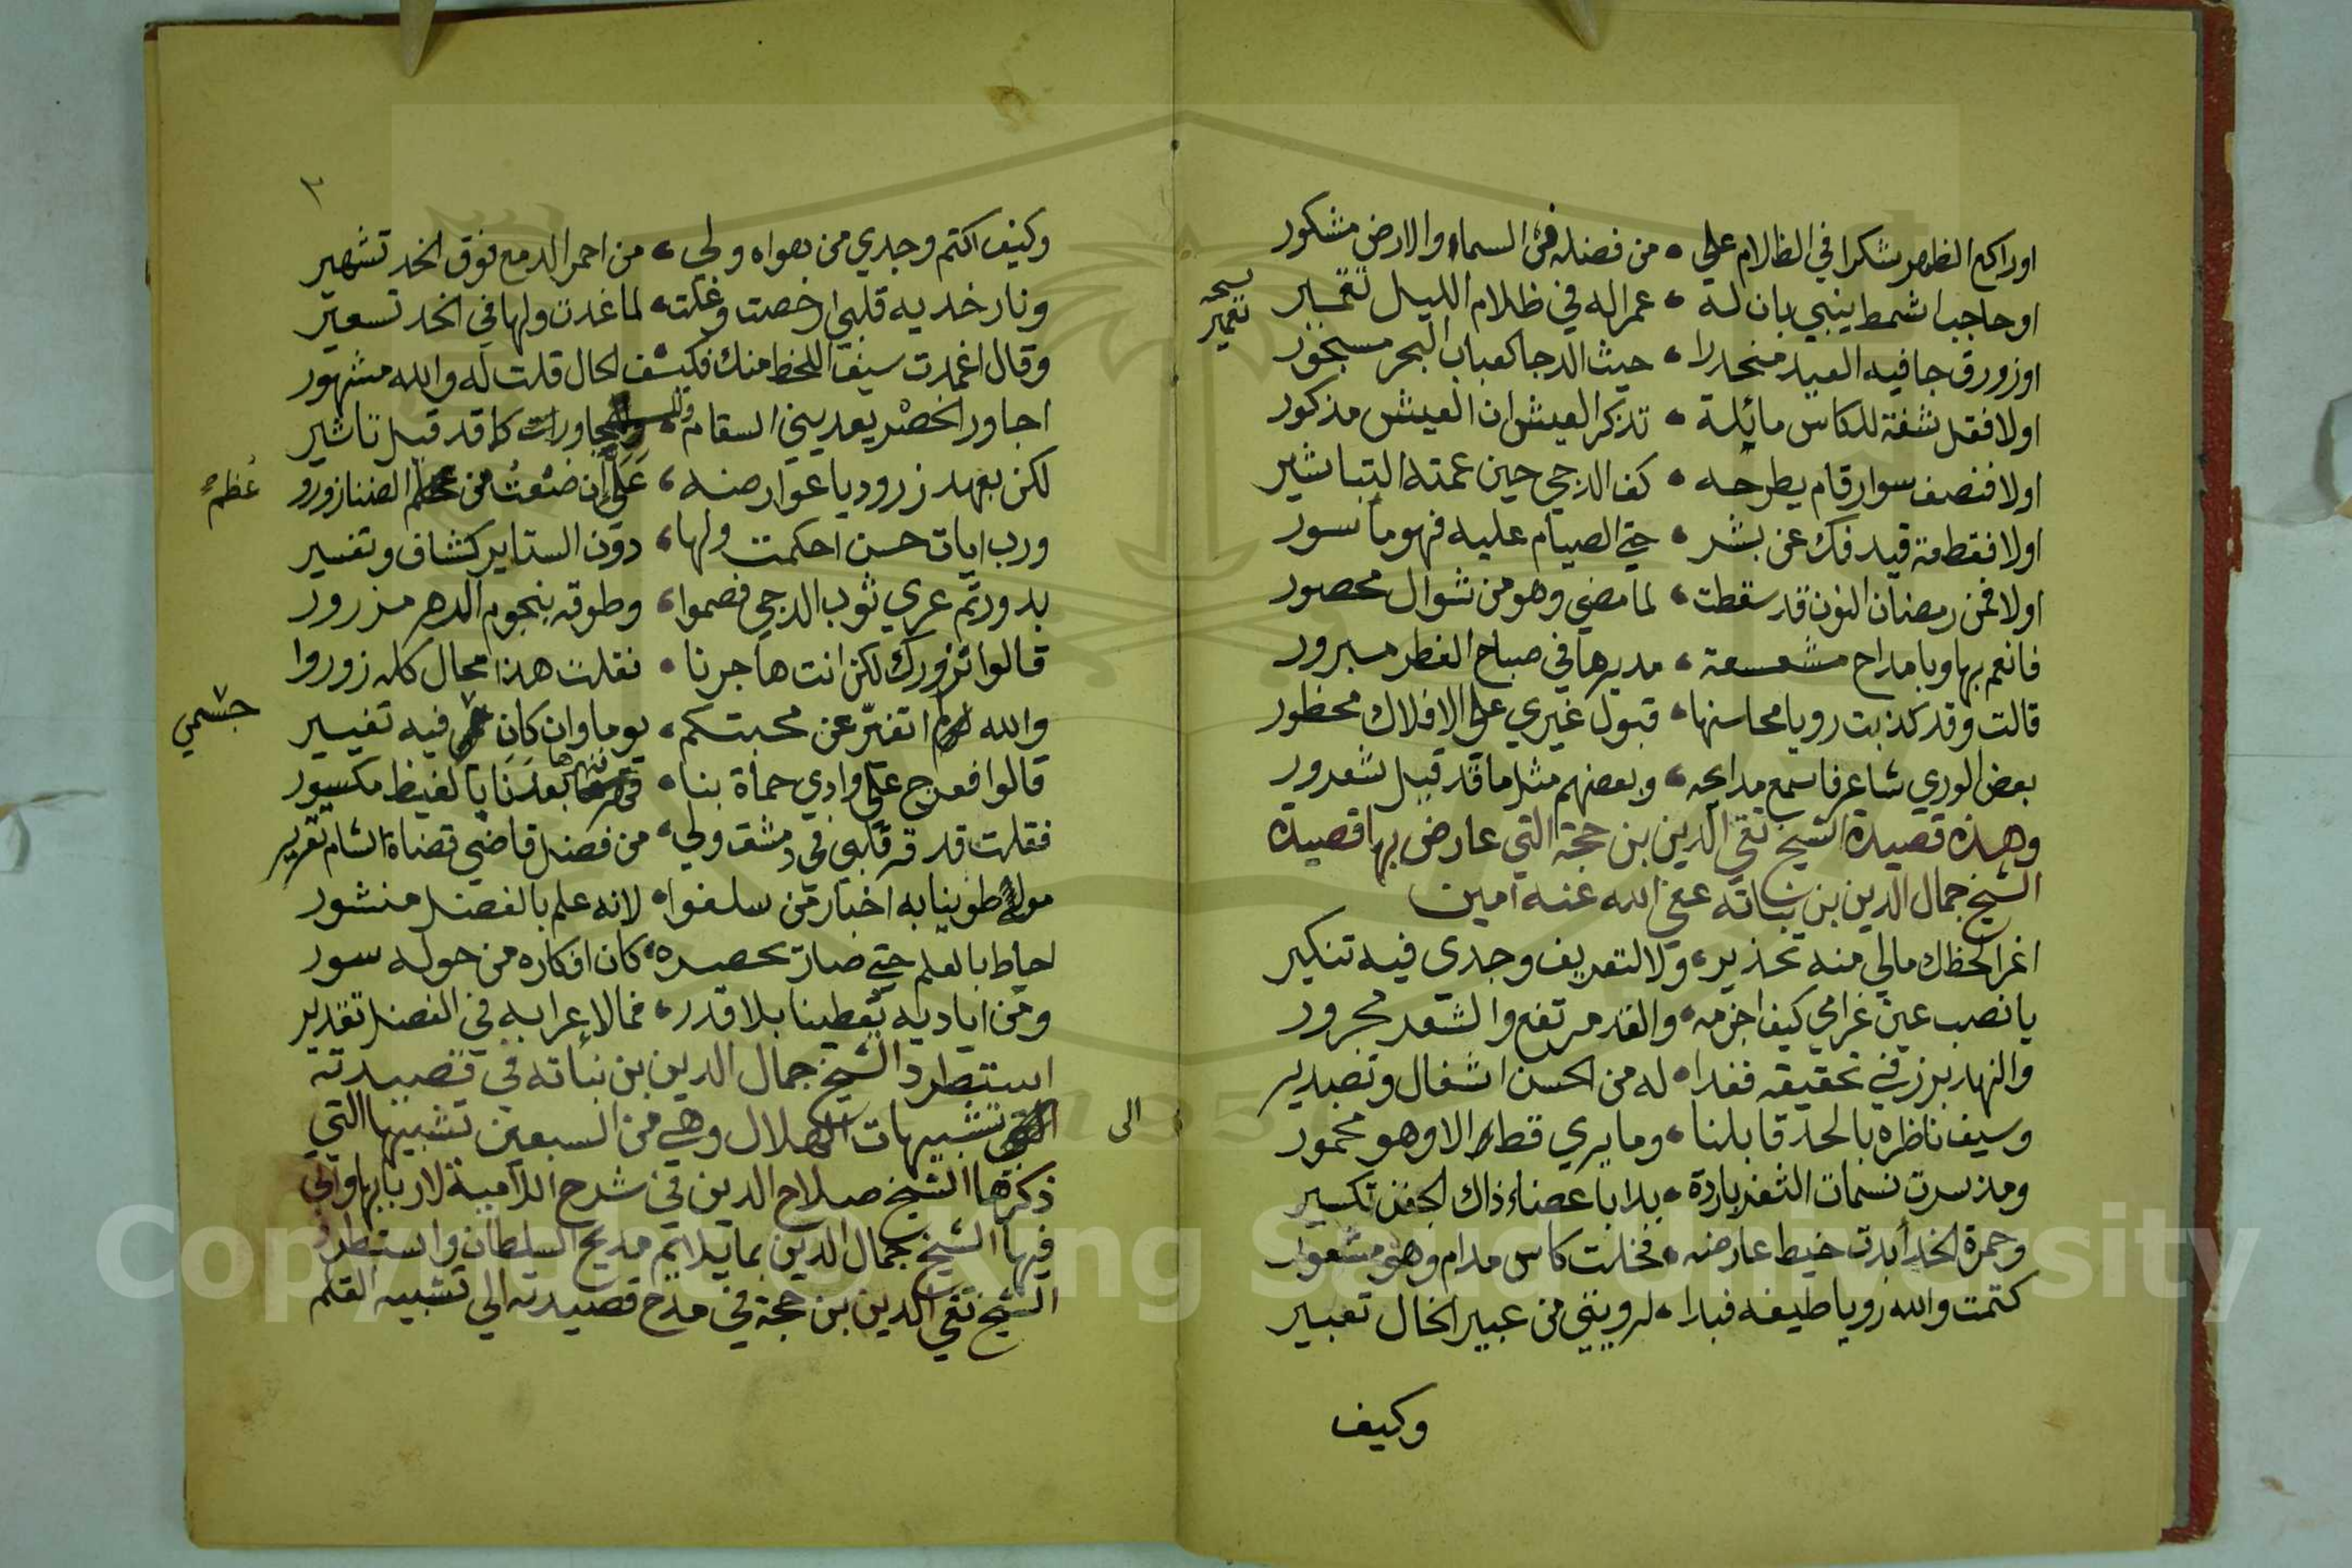 اوراكع الظهر شكرا في الظلام على • من فضله في السماء والارض مشكور
اوحاجب اشمط ينبي بان له • عمرا له في ظلام الليل تقمير
نسخه تعمير
اوزورق جا فيه العيد منحدرا • حيث الدجا كعباب البحر مسجور
اولا فقل شفة للكاس مائلة • تذكر العيش ان العيش مذكور
اولا فنصف سوار قام يطرحه • كف الدجي حين عمته التباشير
اولا فقطعة قيد فك عن بشر • حتى الصيام عليه فهو ماسور
اولا فمن رمضان النون قد سقطت • لما مضي وهو من شوال محصور
فانعم بها وبامداح مشعسعة • مديرها في صباح الفطر مبرور
قالت وقد كذبت رويا محاسنها • قبول غيري علي الافلاك محظور
بعض الوري شاعر فاسمع مدايحه • وبعضهم مثل ما قد قيل شعرور
وهذه قصيدة الشيخ تقي الدين بن حجة التي عارض بها قصيدة
الشيخ جمال الدين بن نباته عفي الله عنه امين
اغرا لحظك مالي منه تحذير • ولا لتعريف وجدي فيه تنكير
يا نصب عين غرامي كيف اخزمه • والقد مرتفع والشعر مجرور
والنهد برز في تحقيقه فغدا • له من الحسن اشغال وتصدير
وسيف ناظره بالحد قابلنا • وما يري قط الا وهو مخمور
ومذ سرت نسمات الثغر باردة • بدا باعضاء ذاك الجفن تكسير
وحمرة الخد أبدت خيط عارضه • فخلت كاس مدام وهو مشعور
كتمت والله رويا طيفه فبدا • لرويتي من عبير الخال تعبير
وكيف
٣
وكيف اكتم وجدي من هواه ولي • من احمر الدمع فوق الخد تشهير
ونار خديه قلبي ارخصت وغلت • لما غدت ولها في الخد تسعير
وقال اغمدت سيف اللحظ منك فكيف الحال قلت له والله مشهور
اجاور الخصر يعديني السقام • وللمجاورات كما قد قيل تاثير
لكن بعهد زرود يا عوارضه • علي ان ضعت من عظم الضنا زورو
عُظمِ
ورب ايات حسن احكمت ولها • دون الستاير كشاف وتفسير
بدور تم عري ثوب الدجي فصموا • وطوقه بنجوم الدهر مزرور
قالوا نزورك لكن انت هاجرنا • فقلت هذا محال كله زوروا
والله ما اتغيّر عن محبتكم • يوما وان كان فيه تغيير
جسمي
قالوا فعرج علي وادي حماة بنا • فنهرها بعدنا بالغيظ مكسور
فقلت قد قر قلبي في دمشق ولي • من فضل قاضي قضاة الشام تقرير
مولي طوينا به اخبار من سلفوا • لانه علم بالفضل منشور
احاط بالعلم حتي صار يحصره • كان افكاره من حوله سور
ومن اياديه يعطينا بلا قدر • فما لإعرابه في الفضل تقدير
استطرد الشيخ جمال الدين بن نباته في قصيدته
الى
تشبيهات الهلال وهي من السبعين تشبيها التي
ذكرها الشيخ صلاح الدين في شرح اللامية لاربابها واتي
فيها الشيخ جمال الدين بما يلائم مديح السلطان واستطرد
الشيخ تقي الدين بن حجة في مدح قصيدته الي تشبيه القلم
Copyright © King Saud University
1957